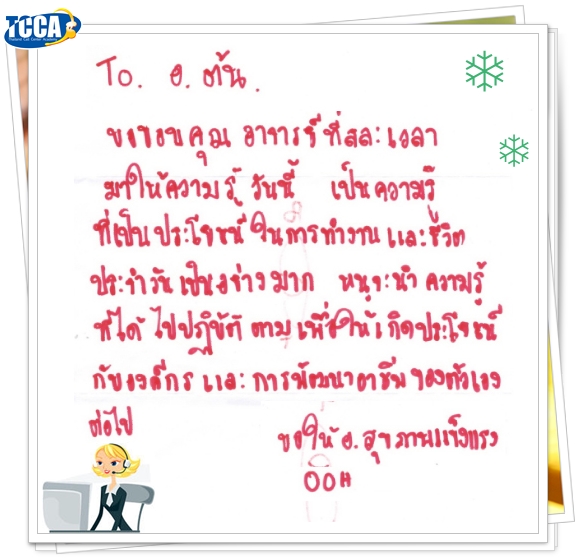 TCCA
Thailand Call Center Academy
To. อ.ต้น.
ขอขอบคุณ อาจารย์ที่สละเวลา
มาให้ความรู้ วันนี้ เป็นความรู้
ที่เป็นประโยชน์ในการทำงานและชีวิต
ประจำวันเป็นอย่างมาก หนูจะนำความรู้
ที่ได้ไปปฏิบัติตามเพื่อให้เกิดประโยชน์
กับองค์กรและการพัฒนาอาชีพของตัวเอง
ต่อไป
ขอให้อ.สุขภาพแข็งแรง